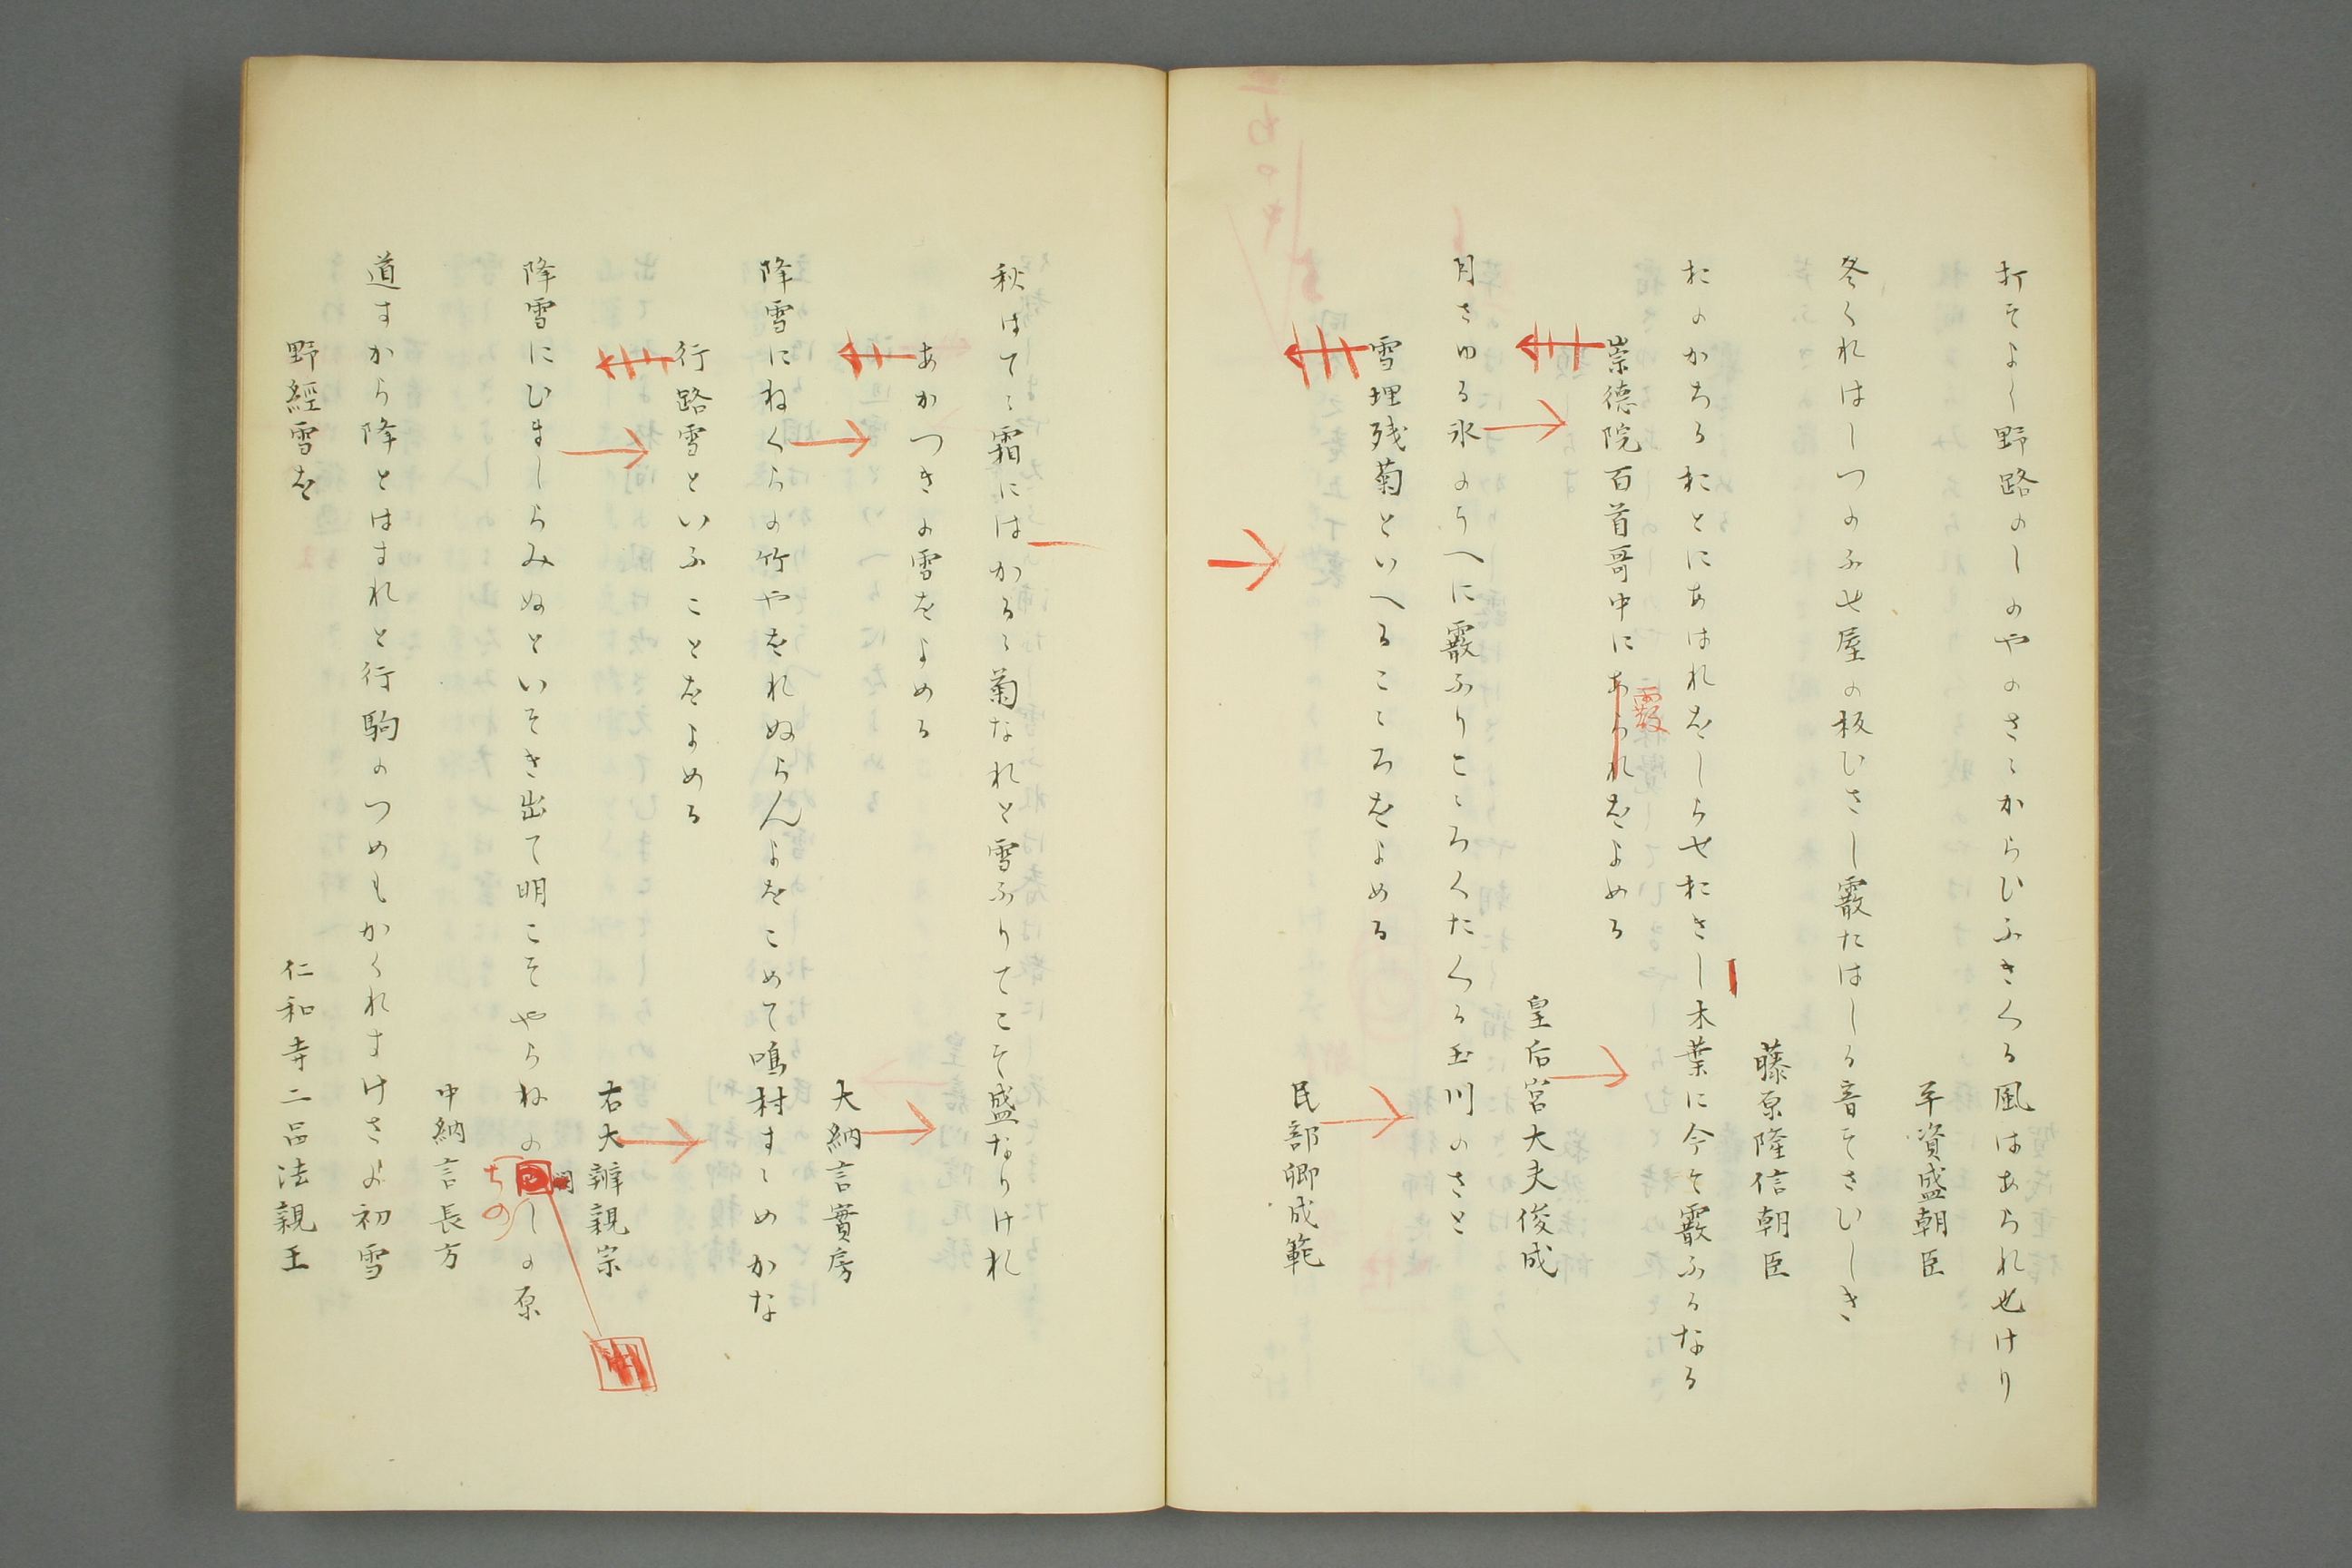 打そよく野路のしのやのさゝからひふきくる風はあられ也けり
平資盛朝臣
冬くれはしつのふせ屋の板ひさし霰たはしる音そさひしき
藤原隆信朝臣
おのかちるおとにあはれをしらせおきし木葉に今そ霰ふるなる
崇徳院百首哥中にあられをよめる
霰
皇后宮大夫俊成
月さゆる氷のうへに霰ふりこゝろくたくる玉川のさと
雪埋残菊といへるこゝろをよめる
民部卿成範
秋はてゝ霜にはかるゝ菊なれと雪ふりてこそ盛なりけれ
あかつきの雪をよめる
大納言實房
降雪にねくらの竹やをれぬらんよをこめて鳴村すゝめかな
行路雪といふことをよめる
右大辨親宗
降雪にひましらみぬといそき出て明こそやらねのしの原
ちの
中納言長方
道すから降とはすれと行駒のつめもかくれすけさの初雪
野經雪を
仁和寺二品法親王